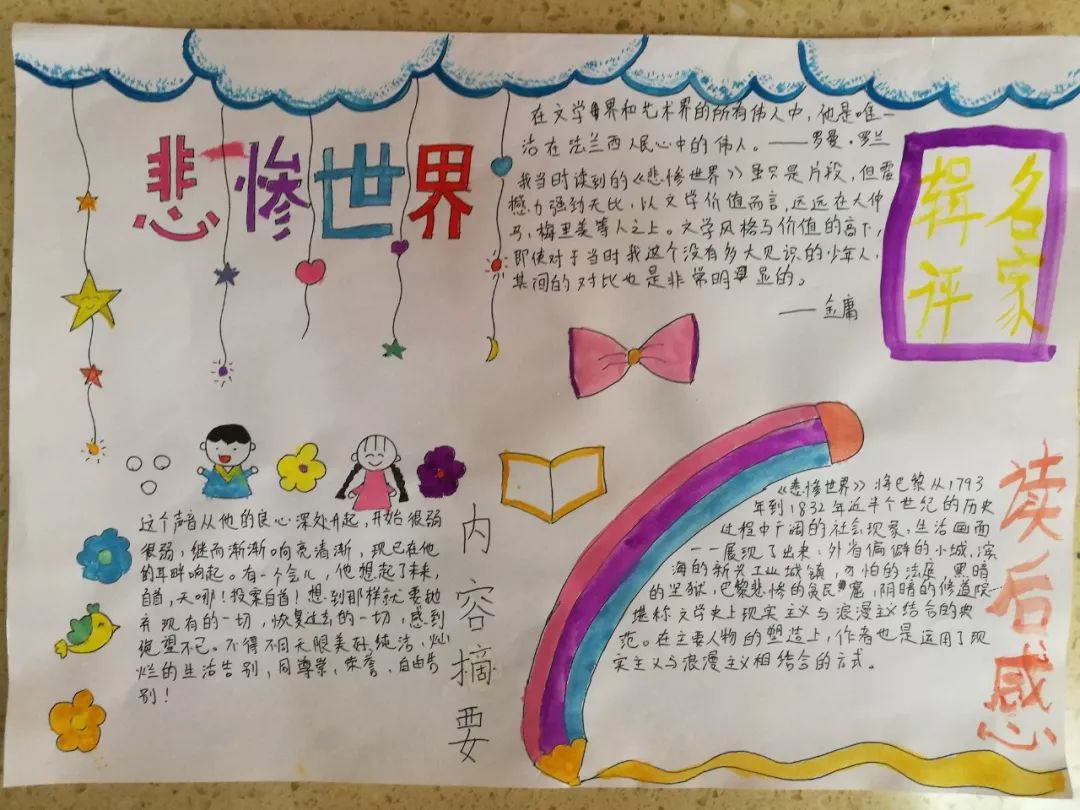 悲惨世界
在文学界和艺术界的所有伟人中，他是唯一
活在法兰西人民心中的伟人。——罗曼·罗兰
我当时读到的《悲惨世界》虽只是片段，但震
撼力强劲无比，以文学价值而言，远远在大仲
马，梅里美等人之上。文学风格与价值的高下，
即使对于当时我这个没有多大见识的少年人，
其间的对比也是非常明显的。
——金庸
名家
辑评
这个声音从他的良心深处升起，开始很弱
很弱，继而渐渐响亮清晰，现已在他
的耳畔响起。有一个会儿，他想起了未来，
自首，天哪！投案自首！想到那样就要抛
弃现有的一切，恢复过去的一切，感到
绝望不已。不得不同无限美好，纯洁、灿
烂的生活告别，同尊崇、荣誉、自由告
别！
内容摘要
《悲惨世界》将巴黎从1793
年到1832年近半个世纪的历史
过程中广阔的社会现象，生活画面
一一展现了出来：外省偏僻的小城，滨
海的新兴工业城镇，可怕的法庭，黑暗
的坐狱，巴黎悲惨的贫民窟，阴暗的修道院…
堪称文学史上现实主义与浪漫主义结合的典
范。在主要人物的塑造上，作者也是运用了现
实主义与浪漫主义相结合的方式。
读后感